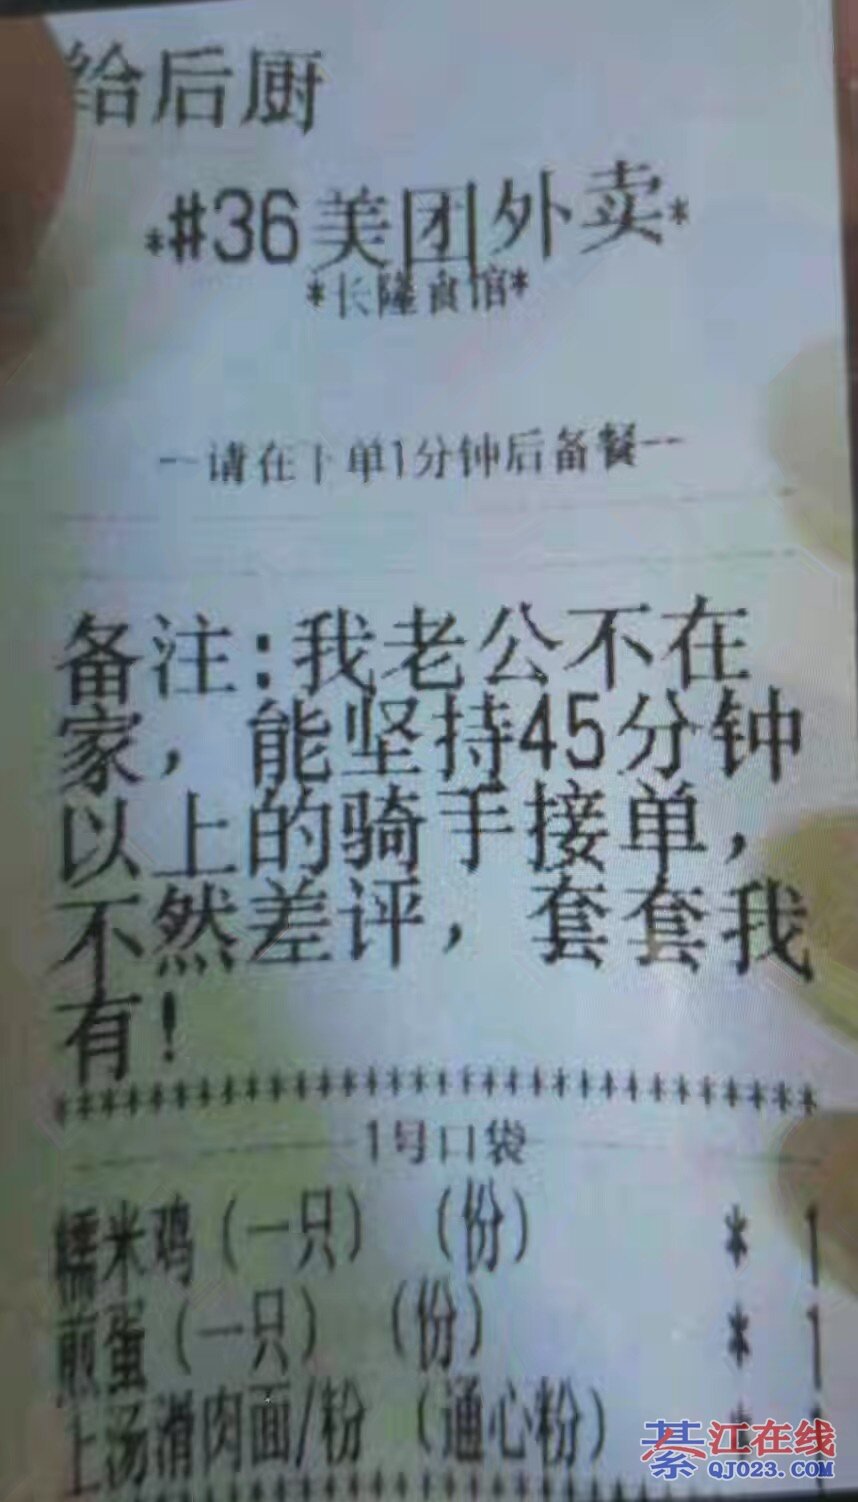 给后厨
*#36美团外卖*
*长隆食馆*
--请在下单1分钟后备餐--
备注:我老公不在
家，能坚持45分钟
以上的骑手接单，
不然差评，套套我
有!
*********************************
1号口袋
糯米鸡(一只) (份) * 1
煎蛋(一只) (份) * 1
上汤滑肉面/粉 (通心粉)
綦江在线
QJ023.COM